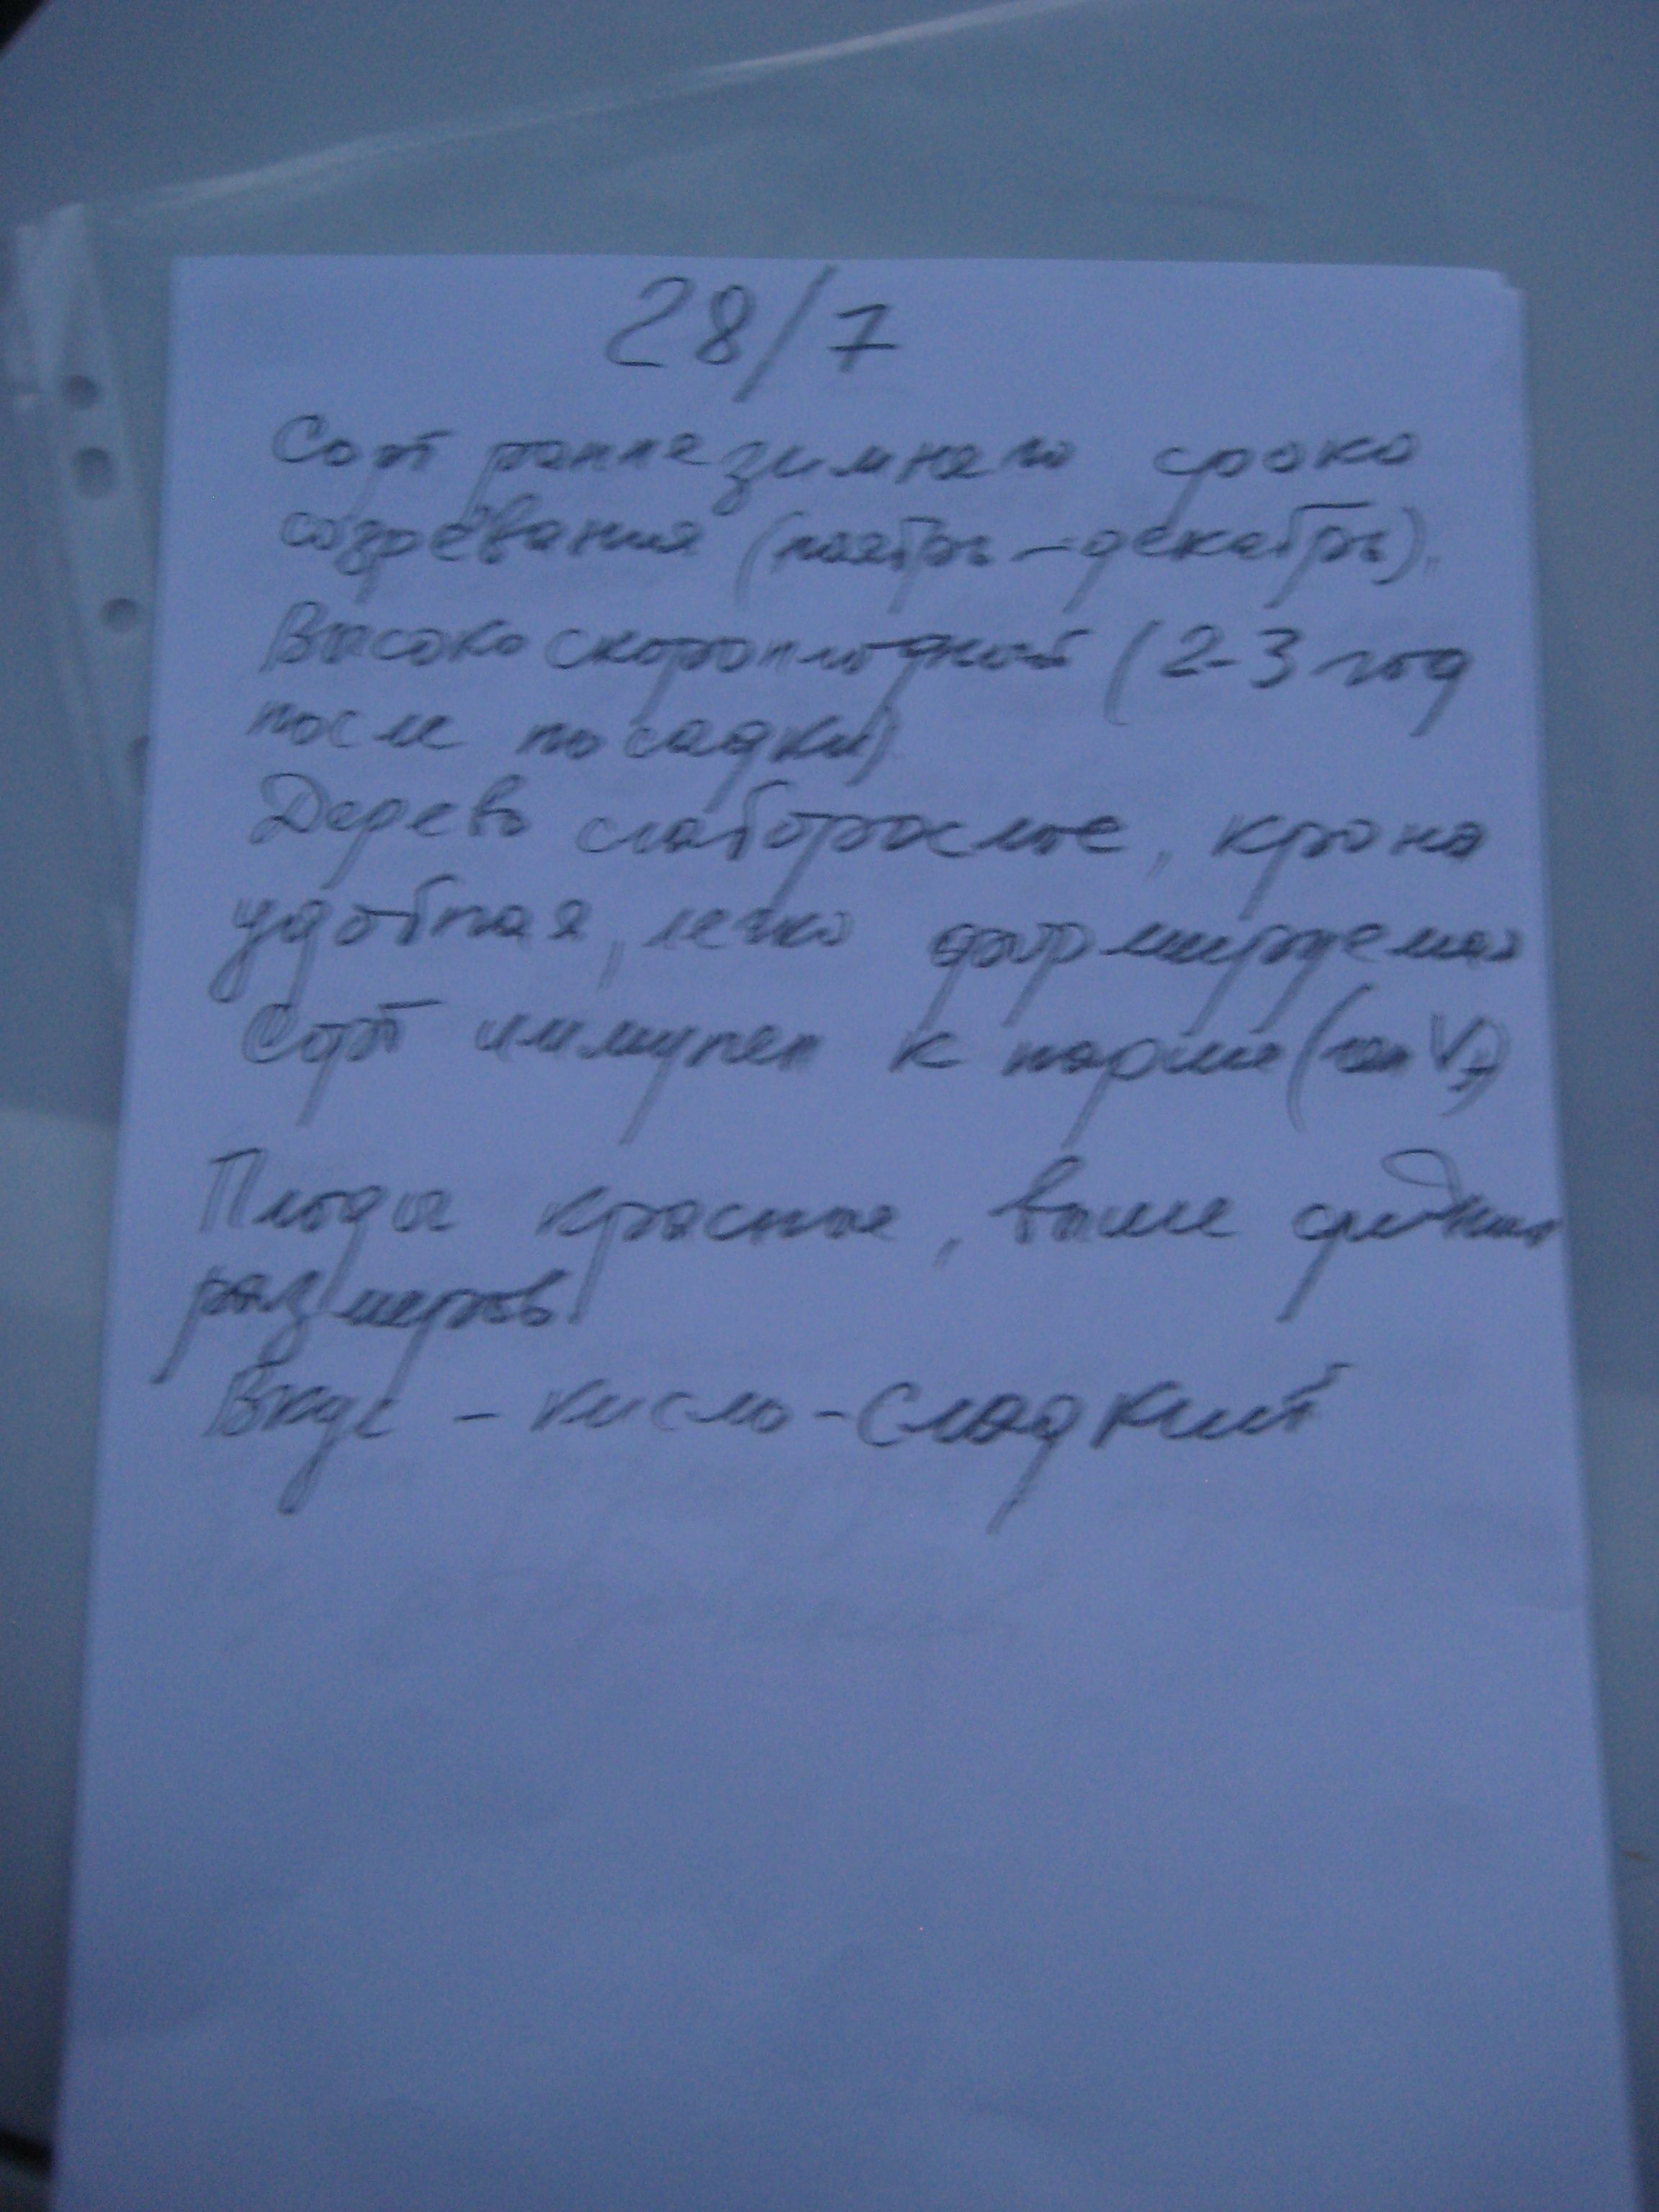 28/7
Сорт раннезимнего срока
созревания (ноябрь – декабрь).
Высокоскороплодный (2-3 год
после посадки)
Дерево слаборослое, крона
удобная, легко формируемая
Сорт иммунен к парше (ген Vf)
Плоды красные, выше средних
размеров.
Вкус – кисло-сладкий